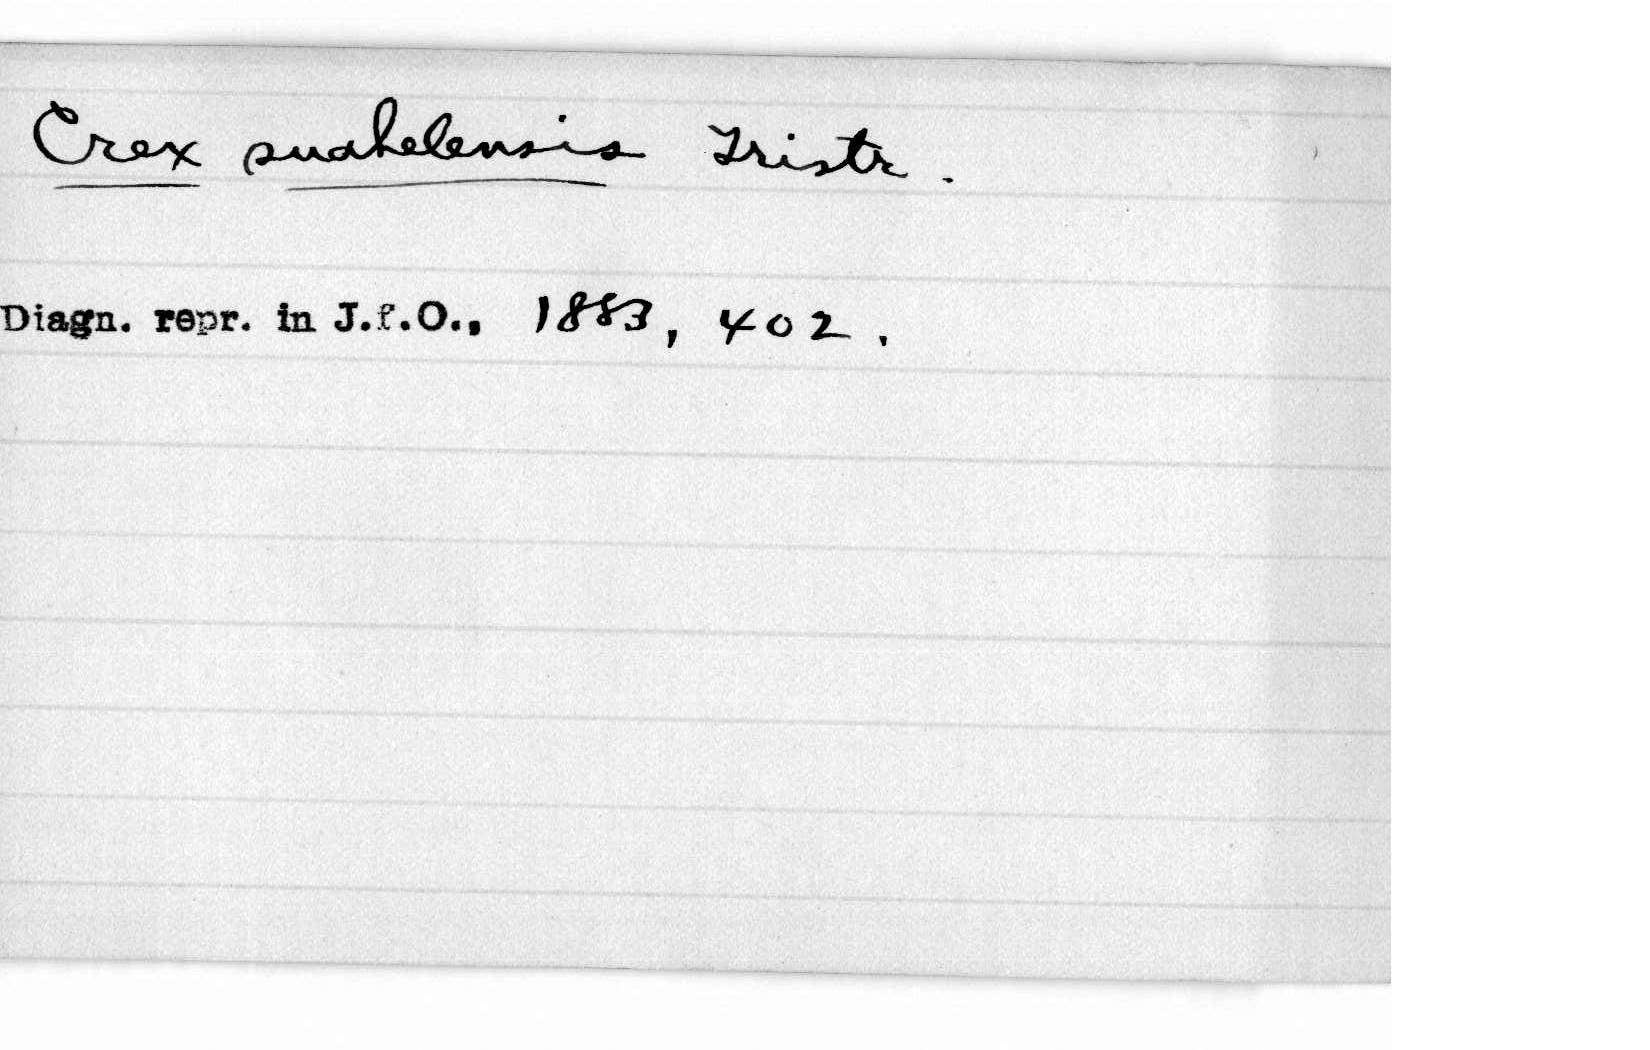 Crex suahelensis Tristr.
Diagn. repr. in J.f.O., 1883, 402.